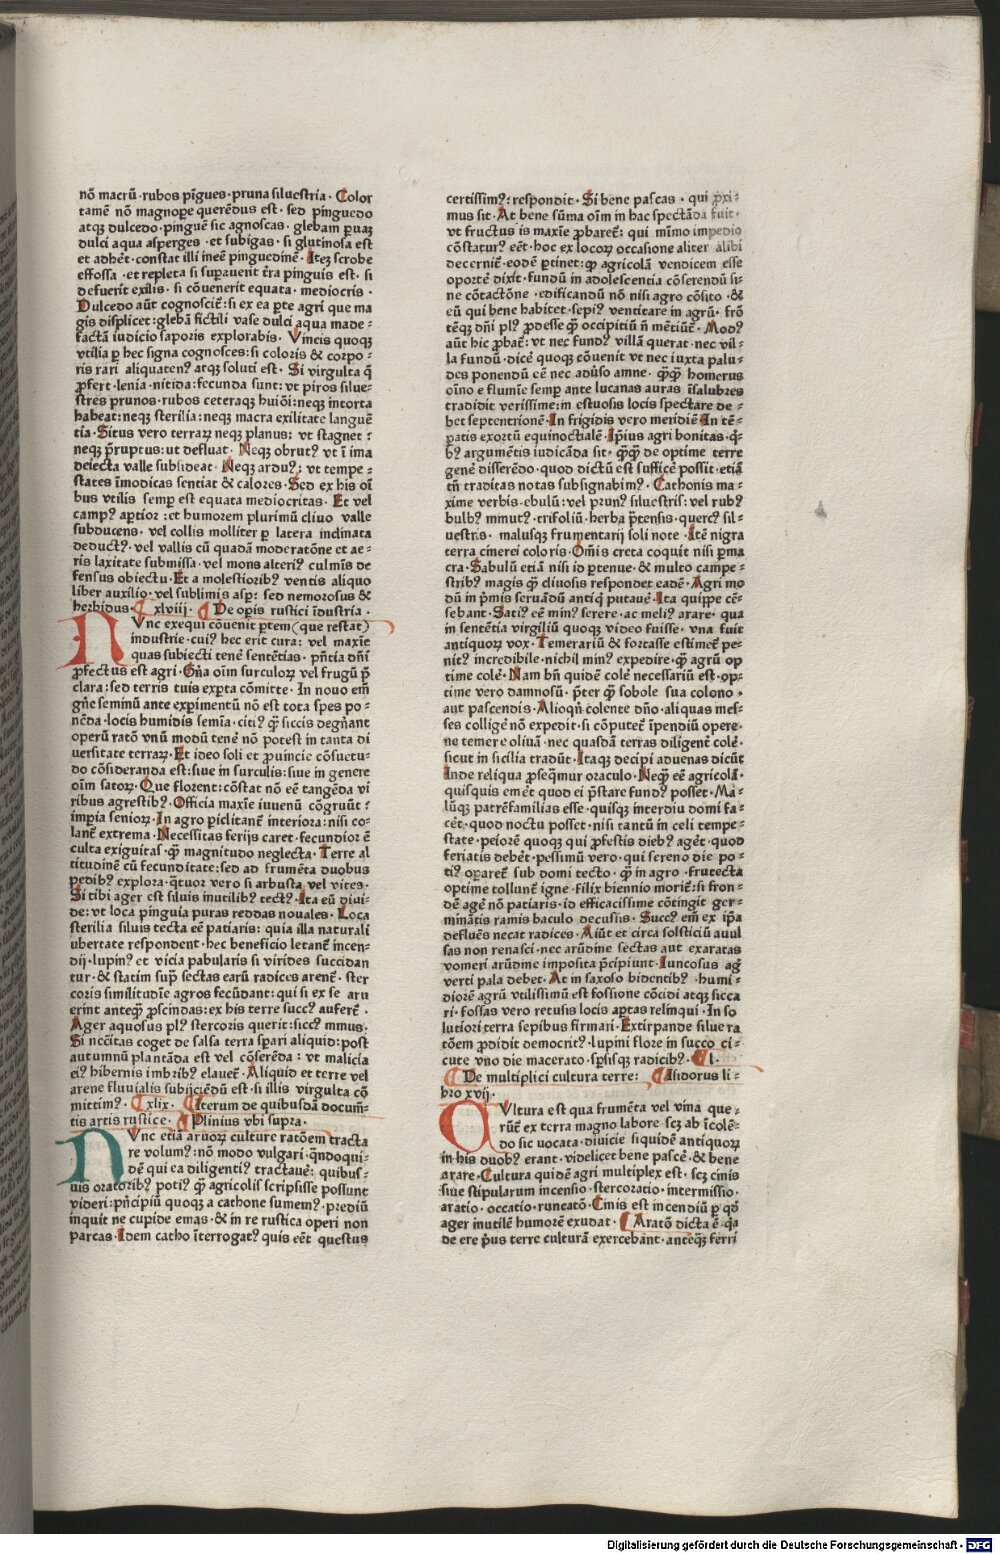 nō macrū · rubos pīgues · pruna siluestria · Color
tamē nō magnope querēdus est · sed pinguedo
atqꝫ dulcedo · pinguē sic agnoscas · glebam ꝑuaꝫ
dulci aqua asperges · et subigas · si glutinosa est
et adhēt · constat illi ineē pinguedinē · Iteꝫ scrobe
effossa · et repleta si suꝑauerit t̄ra pinguis est · si
defuerit exilis · si cōuenerit equata · mediocris ·
Dulcedo aūt cognoscit̄ : si ex ea ꝑte agri que ma
gis displicet : glebā fictili vase dulci aqua made⸗
factā iudicio saporis explorabis · Vineis quoqꝫ
vtilia ꝑ hec signa cognosces : si coloris & corpo⸗
ris rari aliquatenꝰ atqꝫ soluti est · Si virgulta q̄
ꝓfert · lenia · nitida : fecunda sunt : vt piros silue⸗
stres prunos · rubos ceteraqꝫ huiōi : neqꝫ intorta
habeat : neqꝫ sterilia : neqꝫ macra exilitate languē
tia · Situs vero terraꝝ neqꝫ planus : vt stagnet :
neqꝫ p̄ruptus : ut defluat · Neqꝫ obrutꝰ vt ī ima
deiecta valle subsideat · Neqꝫ arduꝰ : vt tempe⸗
states īmodicas sentiat & calores · Sed ex his oī
bus vtilis semꝑ est equata mediocritas · Et vel
campꝰ aꝑtior : et humorem plurimū cliuo valle
subducens · vel collis molliter ꝑ latera inclinata
deductꝰ · vel vallis cū quadā moderatōne et ae⸗
ris laxitate submissa · vel mons alteriꝰ culmīs de
fensus obiectu · Et a molestioribꝰ ventis aliquo
liber auxilio · vel sublimis asꝑ : sed nemorosus &
herbidus · xlviij · De oꝑis rustici īdustria ·
NVnc exequi cōuenit ꝑtem (que restat)
industrie · cuiꝰ hec erit cura : vel maxīe
quas subiecti tenē sentētias · p̄ntia dn̄i
ꝓfectus est agri · Oīa oīm surculoꝝ vel frugū p̄
clara : sed terris tuis exꝑta cōmitte · In nouo em̄
gn̄e seminū ante exꝑimentū nō est tota spes po⸗
nēda · locis humidis semīa · citiꝰ qꝫ siccis degn̄ant
operū ratō vnū modū tenē nō potest in tanta di
uersitate terraꝝ · Et ideo soli et ꝓuincie cōsuetu⸗
do cōsideranda est : siue in surculis : siue in genere
oīm satoꝝ · Que florent : cōstat nō eē tangēda vi
ribus agrestibꝰ · Officia maxīe iuuenū cōgruūt :
imꝑia senioꝝ · In agro ꝑiclitant̄ interiora : nisi co⸗
lant̄ extrema · Necessitas ferijs caret · fecundior ē
culta exiguitas · qꝫ magnitudo neglecta · Terre al
titudinē cū fecunditate : sed ad frumēta duobus
pedibꝰ explora · q̄tuor vero si arbusta vel vites ·
Si tibi ager est siluis inutilibꝰ tectꝰ · Ita eū diui⸗
de : vt loca pinguia puras reddas nouales · Loca
sterilia siluis tecta eē patiaris : quia illa naturali
ubertate respondent · hec beneficio letant̄ incen⸗
dij · lupinꝰ et vicia pabularis si virides succidan
tur · & statim supꝫ sectas earū radices arent̄ · ster
coris similitudīe agros fecūdant : qui si ex se aru
erint anteqꝫ ꝓscindas : ex his terre succꝰ aufert̄ ·
Ager aquosus plꝰ stercoris querit : siccꝰ minus ·
Si nec̄itas coget de salsa terra spari aliquid : post
autumnū plantāda est vel cōserēda : vt malicia
eiꝰ hibernis imbribꝰ elauet̄ · Aliquid et terre vel
arene fluuialis subijciēdū est · si illis virgulta cō
mittim̄ · xlix · Iterum de quibusdā docum̄⸗
tis artis rustice · Plinius vbi supra ·
NVnc etiā aruoꝝ culture ratōem tracta
re volumꝰ : nō modo vulgari · q̄ndoqui⸗
dē qui ea diligentiꝰ tractauēt : quibus⸗
uis oratoribꝰ potiꝰ qꝫ agricolis scripsisse possunt
videri : pn̄cipiū quoqꝫ a cathone sumem̄ · prediū
inquit ne cupide emas · & in re rustica operi non
parcas · Idem catho īterrogatꝰ quis eēt questus
certissimꝰ : respondit · Si bene pascas · qui ꝓxi⸗
mus sit · At bene sūma oīm in hac spectāda fuit ·
vt fructus is maxīe ꝓbaret̄ : qui mīmo impedio
cōstaturꝰ eēt · hoc ex locoꝝ occasione aliter alibi
decernit̄ · eodē ꝑtinet : qꝫ agricolā vendicem esse
oportē dixit · fundū in adolescentia cōserendū si⸗
ne cōtactōne · edificandū nō nisi agro cōsito · &
eū qui bene habitet · sepiꝰ ventitare in agrū · frō
tēqꝫ dn̄i plꝰ ꝓdesse qꝫ occipitiū n̄ mētiūt̄ · Modꝰ
aūt hic ꝓbat̄ : vt nec fundꝰ villā querat · nec vil⸗
la fundū · dicē quoqꝫ cōuenit vt nec iuxta palu⸗
des ponendū eē nec adūso amne · qꝫqꝫ homerus
oīno e flumīe semꝑ ante lucanas auras īsalubres
tradidit verissime : in estuosis locis spectare de⸗
bet septentrionē · In frigidis vero meridiē In tē⸗
ꝑatis exortū equinoctialē · Ip̄ius agri bonitas · q̄⸗
bꝰ argumētis iudicāda sit · qꝫqꝫ de optime terre
genē disserēdo · quod dictū est sufficē possit · etiā
tn̄ traditas notas subsignabimꝰ · Cathonis ma⸗
xime verbis · ebulū : vel prunꝰ siluestris : vel rubꝰ
bulbꝰ minutꝰ · trifoliū · herba p̄tensis · quercꝰ sil⸗
uestris · malusqꝫ frumentarij soli note · Itē nigra
terra cinerei coloris · Om̄is creta coquit nisi ꝑma
cra · Sabulū etiā nisi id ꝑtenue · & multo campe⸗
stribꝰ magis qꝫ cliuosis respondet eadē · Agri mo
dū in p̄mis seruādū antiq̄ putauē · Ita quippe cē⸗
sebant · Satiꝰ eē minꝰ serere · ac meliꝰ arare · qua
in sentētia virgiliū quoqꝫ video fuisse · vna fuit
antiquoꝝ vox · Temerariū & fortasse estimet̄ pe⸗
nitꝰ incredibile · nichil minꝰ expedire · qꝫ agrū op
time colē · Nam bn̄ quidē colē necessariū est · op⸗
time vero damnosū · p̄ter qꝫ sobole sua colono ·
aut pascendis · Alioqn̄ colente dn̄o · aliquas mes⸗
ses colligē nō expedit · si cōputet̄ īpendiū opere ·
ne temere oliuā · nec quasdā terras diligent̄ colē ·
sicut in sicilia tradūt · Itaqꝫ decipi aduenas dicūt
Inde reliqua ꝓseq̄mur oraculo · Neqꝫ eē agricolā ·
quisquis emēt quod ei p̄stare fundꝰ posset · Ma⸗
lūqꝫ patrēfamilias esse · quisqꝫ interdiu domi fa⸗
cēt · quod noctu posset · nisi tantū in celi tempe⸗
state · peiorē quoqꝫ qui ꝓfestis diebꝰ agēt · quod
feriatis debēt · pessimū vero · qui sereno die po⸗
tiꝰ oꝑaret̄ sub domi tecto · qꝫ in agro · frutecta
optime tollunt̄ igne · filix biennio morit̄ : si fron⸗
dē agē nō patiaris · id efficacissime cōtingit ger⸗
minātis ramis baculo decussis · Succꝰ em̄ ex ip̄a
defluēs necat radices · Aiūt et circa solsticiū auul
sas non renasci · nec arūdine sectas aut exaratas
vomeri arūdine imposita p̄cipiunt · Iuncosus agꝫ
verti pala debet · At in saxoso bidentibꝰ · humi⸗
diorē agrū vtilissimū est fossione cōcidi atqꝫ sicca
ri · fossas vero retusis locis aptas relinqui · In so
lutiori terra sepibus firmari · Extirpande silue ra
tōem ꝓdidit democritꝰ · lupini flore in succo ci⸗
cute vno die macerato · spsisqꝫ radicibꝰ · l ·
De multiplici cultura terre : Isidorus li⸗
bro xvij ·
CVltura est qua frumēta vel vina que⸗
rūt̄ ex terra magno labore · scꝫ ab īcolē⸗
do sic uocata · diuicie siquidē antiquoꝝ
in his duobꝰ erant · videlicet bene pascē · & bene
arare · Cultura quidē agri multiplex est · scꝫ cinis
siue stipularum incensio · stercoratio · intermissio ·
aratio · occatio · runcatō · Cinis est incendiū ꝑ qd̄
ager inutilē humorē exudat · Aratō dicta ē · qꝛ
de ere pͥus terre culturā exercebant · anteqꝫ ferri
Digitalisierung gefördert durch die Deutsche Forschungsgemeinschaft - DFG